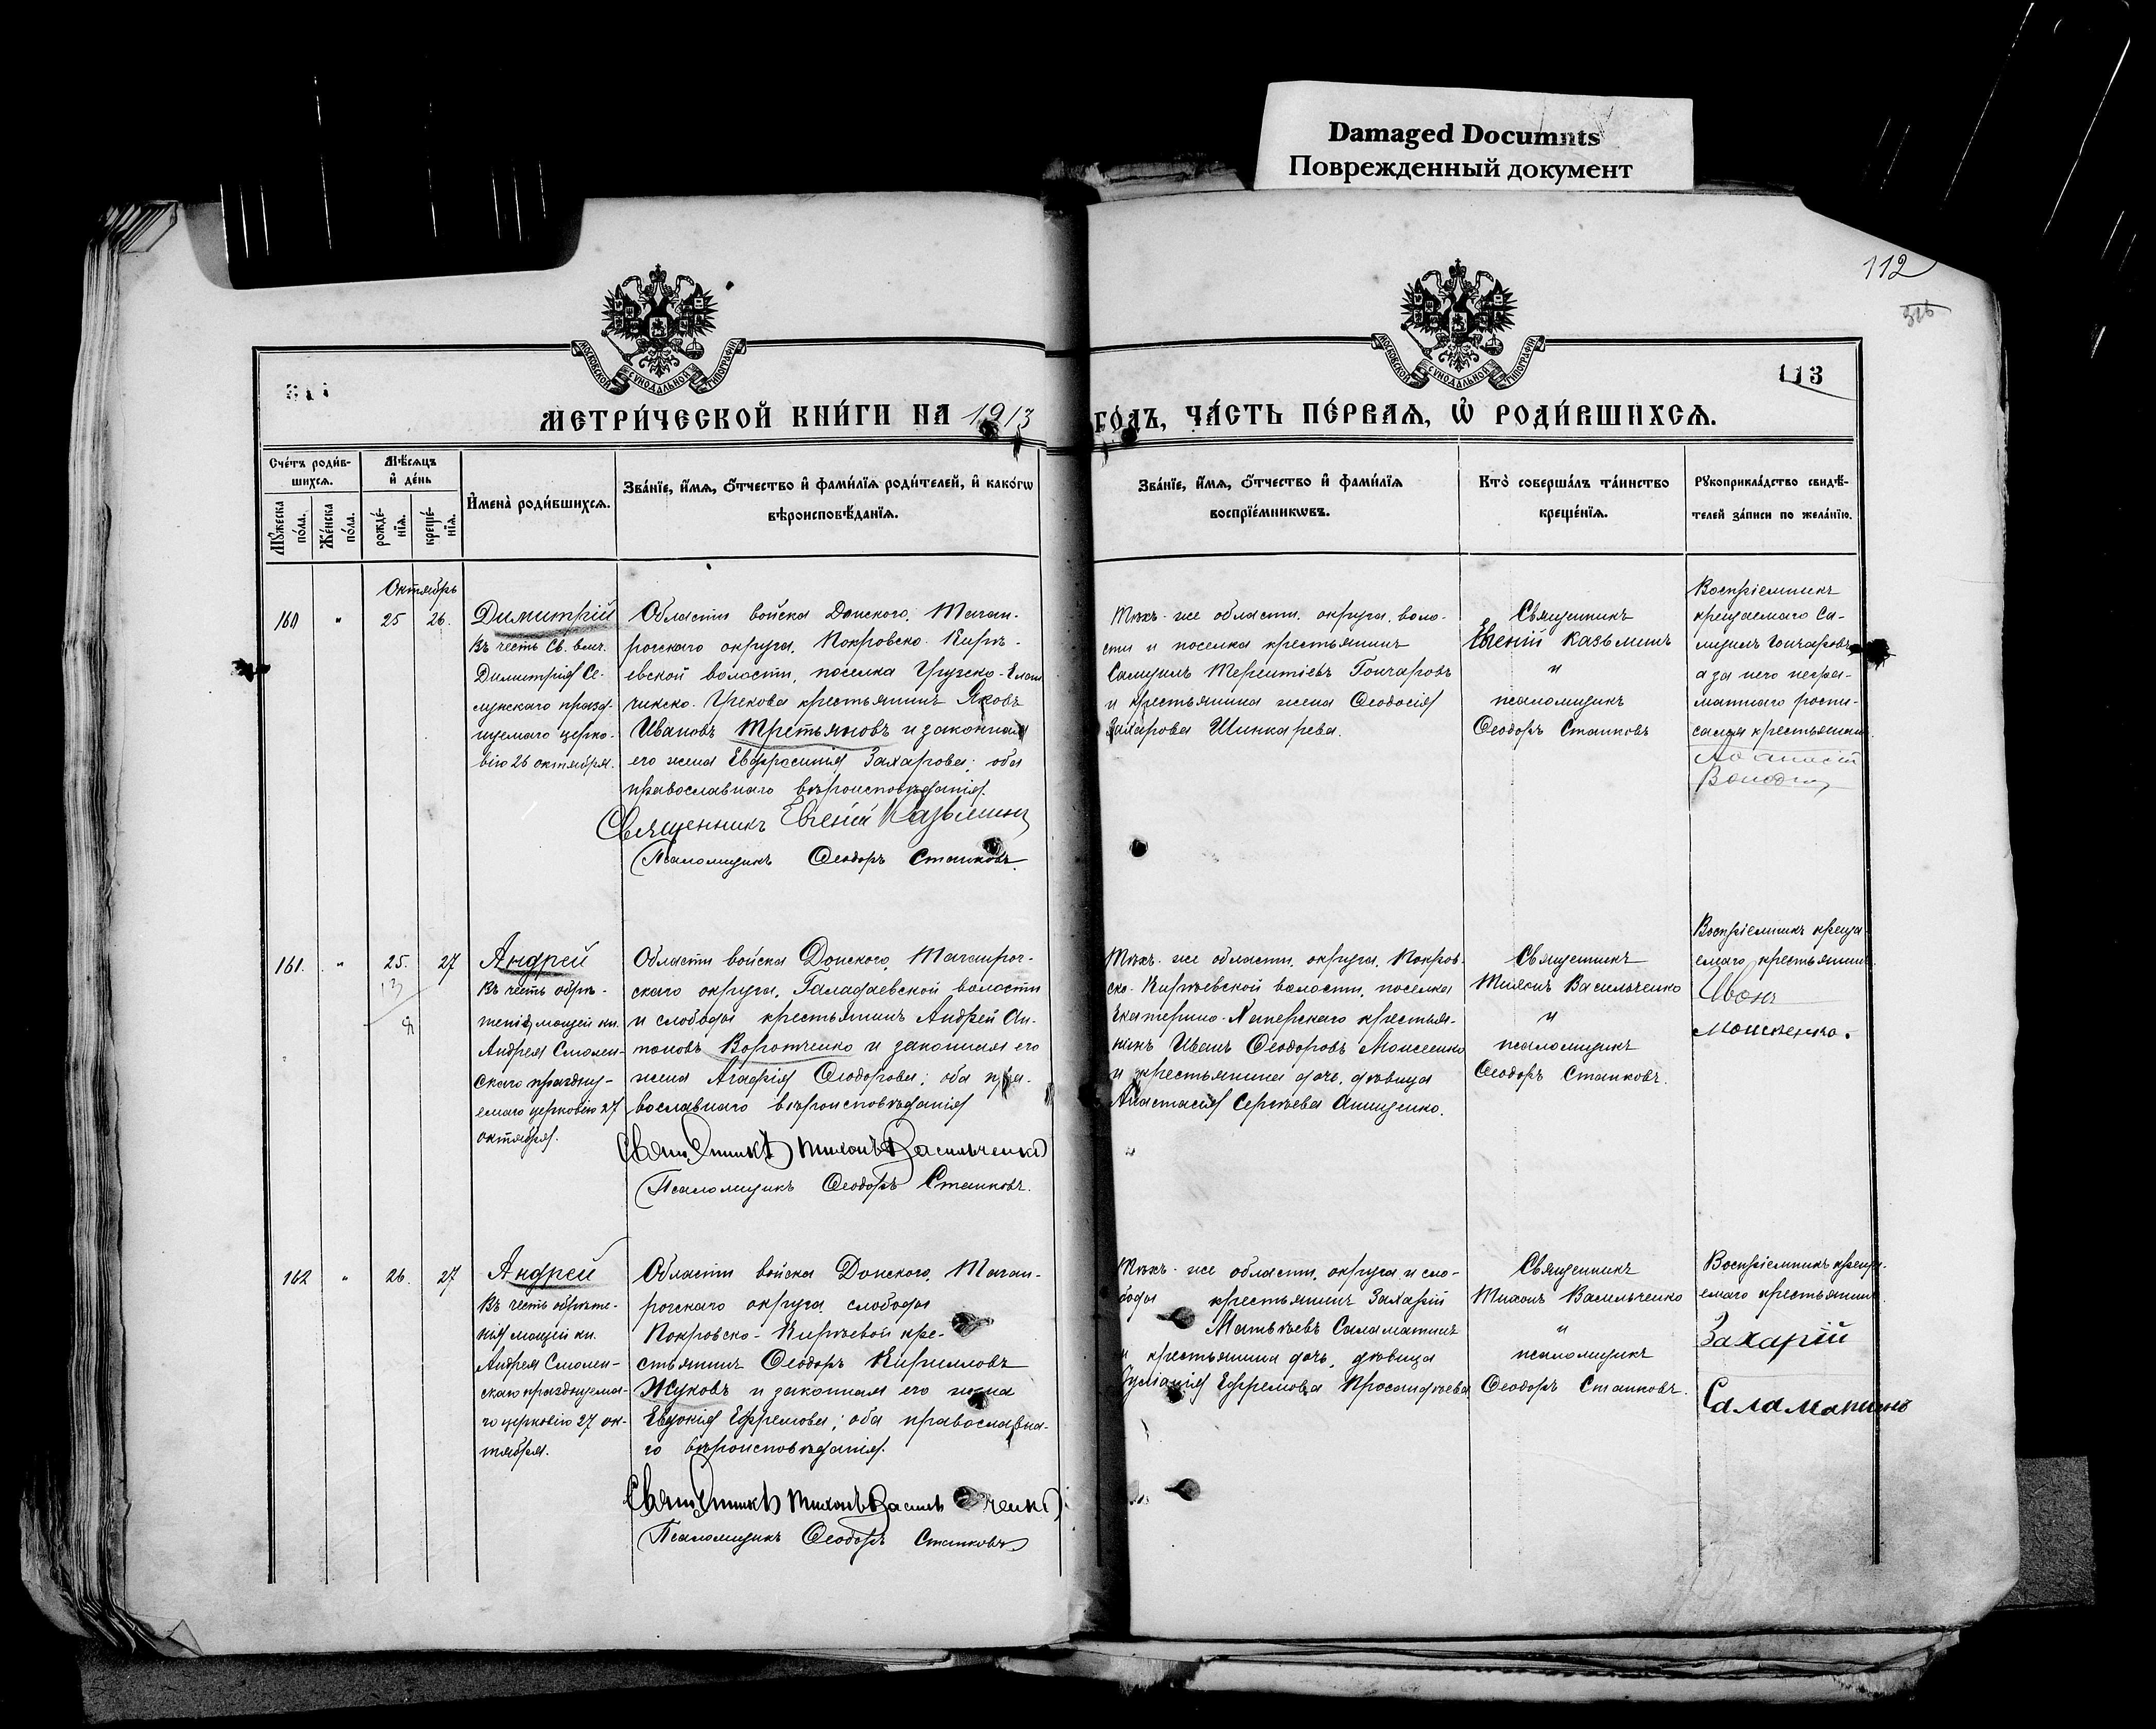 Damaged Documnts
Поврежденный документ
112
113
МОСКОВСКОЙ СѴНОДАЛЬНОЙ ТИПОГРАФІИ
МОСКОВСКОЙ СѴНОДАЛЬНОЙ ТИПОГРАФІИ
МЕТРИ́ЧЕСКОЙ КНИ́ГИ НА 1913
ГО́ДЪ, ЧА́СТЬ ПЕ́РВАѦ, Ѡ҆ РОДИ́ВШИХСѦ.
Сче́тъ роди́в-
шихсѧ.
Мѣ́сѧцъ
и҆ де́нь
Мꙋ́жеска
по́ла.
Же́нска
по́ла.
рожде́-
нїѧ.
креще́-
нїѧ.
И҆мена̀ роди́вшихсѧ.
Зва́нїе, и҆́мѧ, ѻ҆́тчество и҆ фами́лїѧ роди́телей, и҆ како́гѡ
вѣроисповѣ́данїѧ.
Зва́нїе, и҆́мѧ, ѻ҆́тчество и҆ фами́лїѧ
воспрїе́мникѡвъ.
Кто̀ соверша́лъ та́инство
креще́нїѧ.
Рꙋкоприкла́дство свидѣ́-
телей за́писи по жела́нїю.
Октябрь
160 " 25 26.
Димитрій
Въ честь Св. влмч.
Димитрія Се-
лунскаго празд-
нуемаго церко-
вію 26 октября.
Области войска Донского, Таган-
рогскаго округа, Покровско-Кирѣ-
евской волости, поселка Грузско-Елан
чикско-Грекова крестьянинъ Яковъ
Ивановъ Третьяковъ и законная
его жена Евфросинія Захарова; оба
православнаго вѣроисповѣданія.
Священникъ Евгеній Казьминъ
Псаломщикъ Ѳеодоръ Станковъ.
Тѣхъ-же области, округа, воло-
сти и поселка крестьянинъ
Самуилъ Терентіевъ Гончаровъ
и крестьянина жена Ѳеодосія
Захарова Шинкарева.
Священникъ
Евгеній Казьминъ
и
псаломщикъ
Ѳеодоръ Станковъ
Воспріемникъ
крещаемаго Са-
муилъ Гончаровъ
а за него негра-
мотнаго роспи-
сался крестьянинъ
161. " 25. 27
13
Андрей
Въ честь обрѣ-
тенія мощей кн.
Андрея Смолен-
скаго праздну-
емаго церковію 27
октября.
Области войска Донского, Таганрог-
скаго округа, Голодаевской волости
и слободы крестьянинъ Андрей Ан-
тоновъ Воротченко и законная его
жена Агафія Ѳеодорова; оба пра-
вославнаго вѣроисповѣданія
Священникъ Тихонъ Васильченко
Псаломщикъ Ѳеодоръ Станковъ.
Тѣхъ-же области, округа, Покров-
ско-Кирѣевской волости, поселка
Екатерино-Хаперскаго крестья-
нинъ Иванъ Ѳеодоровъ Моисеенко
и крестьянина дочь, дѣвица
Анастасія Сергѣева Онищенко.
Священникъ
Тихонъ Васильченко
и
псаломщикъ
Ѳеодоръ Станковъ.
Воспріемникъ креща-
емаго крестьянинъ
Иванъ
Моисеенко.
162 " 26. 27
Андрей
Въ честь обрѣте-
нія мощей кн.
Андрея Смолен-
скаго празднуема-
го церковію 27 ок-
тября.
Области войска Донского, Таган-
рогскаго округа слободы
Покровско-Кирѣевой кре-
стьянинъ Ѳеодоръ Кирилловъ
Жуковъ и законная его жена
Евдокія Ефремова; оба православна-
го вѣроисповѣданія.
Священникъ Тихонъ Васильченко
Псаломщикъ Ѳеодоръ Станковъ
Тѣхъ-же области, округа и сло-
боды крестьянинъ Захарій
Матвѣевъ Саламатинъ
и крестьянина дочь, дѣвица
Ефремова
Священникъ
Тихонъ Васильченко
и
псаломщикъ
Ѳеодоръ Станковъ.
Воспріемникъ креща-
емаго крестьянинъ
Захарій
Саламатинъ